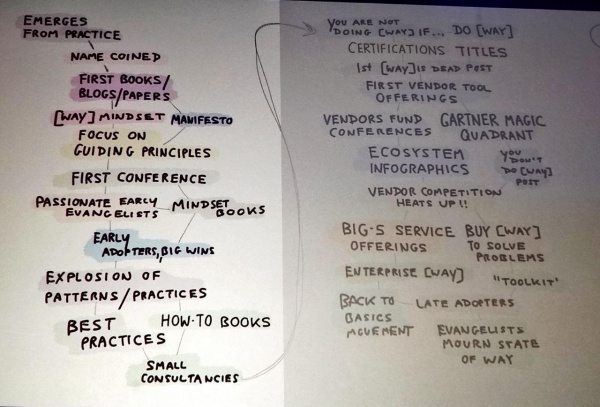 EMERGES
FROM PRACTICE
NAME COINED
FIRST BOOKS/
BLOGS/PAPERS
[WAY] MINDSET MANIFESTO
FOCUS ON
GUIDING PRINCIPLES
FIRST CONFERENCE
PASSIONATE EARLY
EVANGELISTS
MINDSET
BOOKS
EARLY
ADOPTERS, BIG WINS
EXPLOSION OF
PATTERNS/PRACTICES
BEST
PRACTICES
HOW-TO BOOKS
SMALL
CONSULTANCIES
YOU ARE NOT
DOING [WAY] IF... DO [WAY]
CERTIFICATIONS TITLES
1st [WAY] IS DEAD POST
FIRST VENDOR TOOL
OFFERINGS
VENDORS FUND
CONFERENCES
GARTNER MAGIC
QUADRANT
ECOSYSTEM
INFOGRAPHICS
YOU
DON'T
DO [WAY]
POST
VENDOR COMPETITION
HEATS UP!!
BIG-5 SERVICE
OFFERINGS
BUY [WAY]
TO SOLVE
PROBLEMS
ENTERPRISE [WAY]
"TOOLKIT"
BACK TO
BASICS
MOVEMENT
LATE ADOPTERS
EVANGELISTS
MOURN STATE
OF WAY